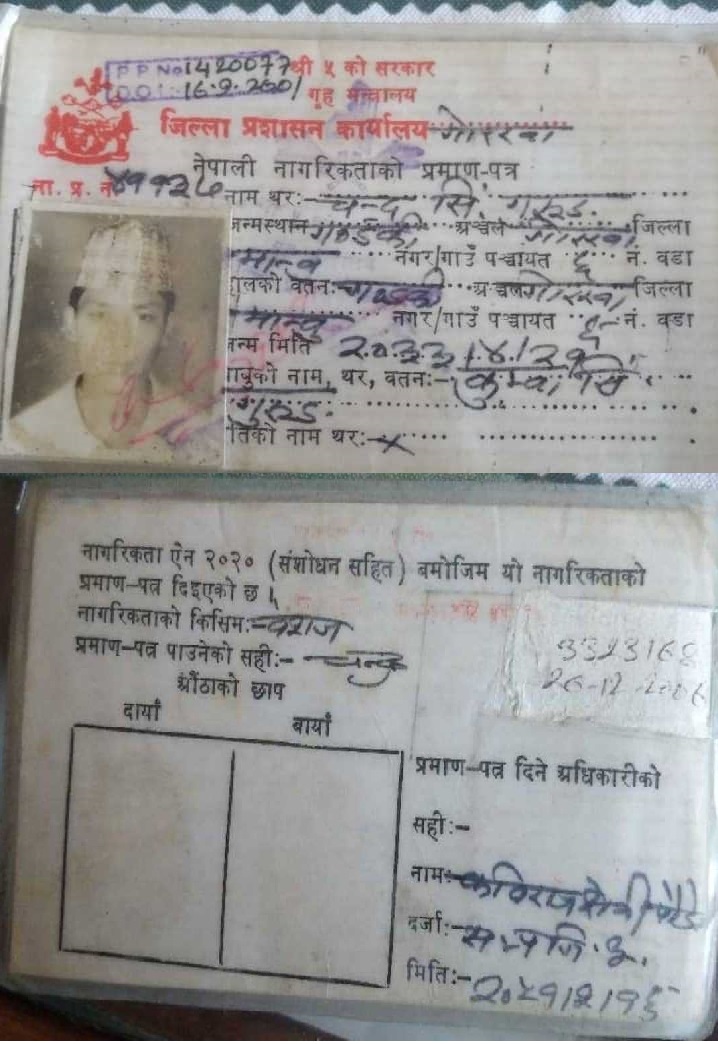 P P No 1420077 श्री ५ को सरकार
D O I 16.2.2001 गृह मन्त्रालय
जिल्ला प्रशासन कार्यालय गोरखा
नेपाली नागरिकताको प्रमाण-पत्र
ना. प्र. नं
नाम थर:- चन्द्र सिं. गुरुङ.
जन्मस्थान गण्डकी अञ्चल गोरखा जिल्ला
मान्बु नगर/गाउँ पञ्चायत ६ नं. वडा
हालको वतन:- गण्डकी अञ्चल गोरखा जिल्ला
मान्बु नगर/गाउँ पञ्चायत ६ नं. वडा
जन्म मिति २०३३।४।२१
बाबुको नाम, थर, वतन:- सिं
गुरुङ.
पतिको नाम थर:- x
नागरिकता ऐन २०२० (संशोधन सहित) बमोजिम यो नागरिकताको
प्रमाण-पत्र दिइएको छ ।
नागरिकताको किसिम:- वंशज
प्रमाण-पत्र पाउनेको सही:- चन्द्र
औंठाको छाप
दायाँ बायाँ
3323168
26-12-2006
प्रमाण-पत्र दिने अधिकारीको
सही:-
नाम:-
दर्जा:-
मिति:- २०५१।२।१६